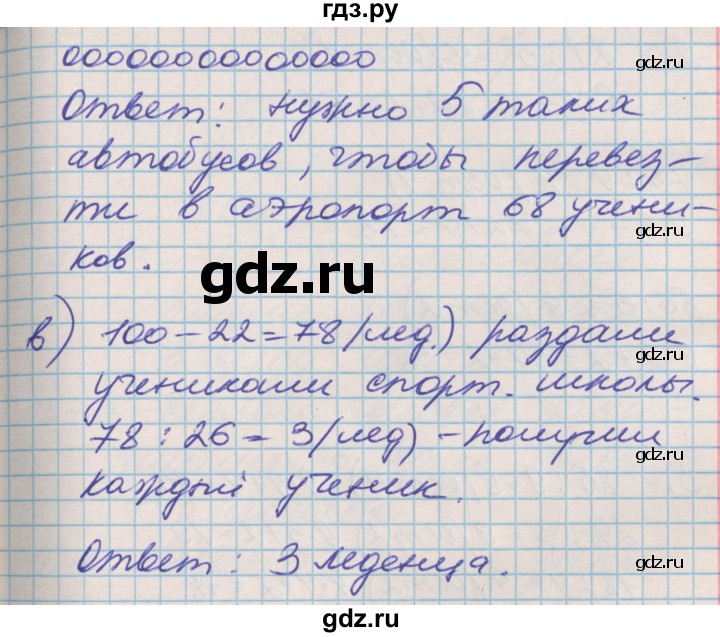 гдз.ру
gdz.ru
ооооооооооооооо
Ответ: нужно 5 таких
автобусов, чтобы перевез-
gdz.ru
ти в аэропорт 68 учени-
gdz.ru
ков.
gdz.ru
в) 100-22=78 (лед.) раздали
gdz.ru
учениками спорт. школы.
78 : 26 = 3 (лед) - получил
gdz.ru
каждый ученик.
Ответ: 3 леденца.
gdz.ru
gdz.ru